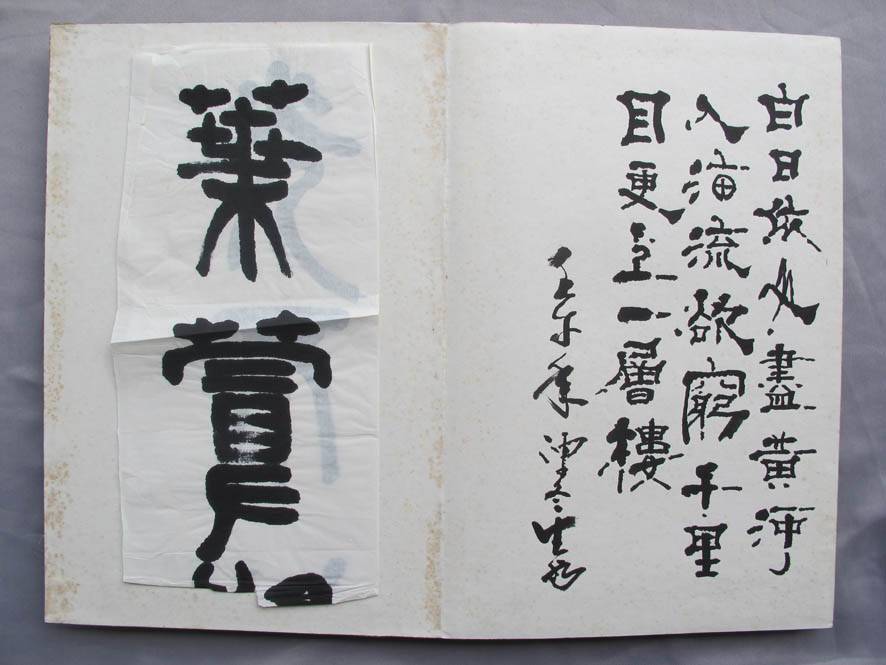 白日依山盡黃河
入海流欲窮千里
目更上一層樓
壬午年